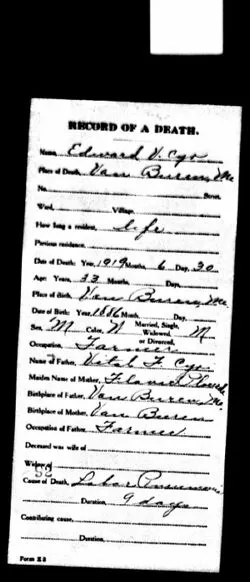 RECORD OF A DEATH.
Name, Edward V. Cyr
Place of Death, Van Buren, Me
No. Street.
Ward, Village,
How long a resident, Life
Previous residence,
Date of Death: Year, 1919 Month, 6 Day, 30
Age: Years, 33 Months, Days,
Place of Birth, Van Buren, Me.
Date of Birth: Year, 1886 Month, Day,
Sex, M Color, W Married, Single, Widowed, or Divorced, M
Occupation, Farmer
Name of Father, Vital F. Cyr
Maiden Name of Mother, Flavie
Birthplace of Father, Van Buren, Me.
Birthplace of Mother, Van Buren
Occupation of Father, Farmer
Deceased was wife of
Widow of
52
Cause of Death, Lobar Pneumonia
Duration, 9 days
Contributing cause,
Duration,